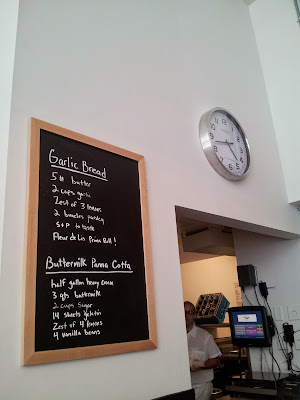 Garlic Bread
5# butter
2 cups garlic
Zest of 3 lemons
2 bunches parsley
S+P to taste
Fleur de Lin Prima Roll!
Buttermilk Panna Cotta
half gallon heavy cream
3 qts buttermilk
2 cups sugar
14 sheets gelatin
Zest of 4 lemons
4 vanilla beans